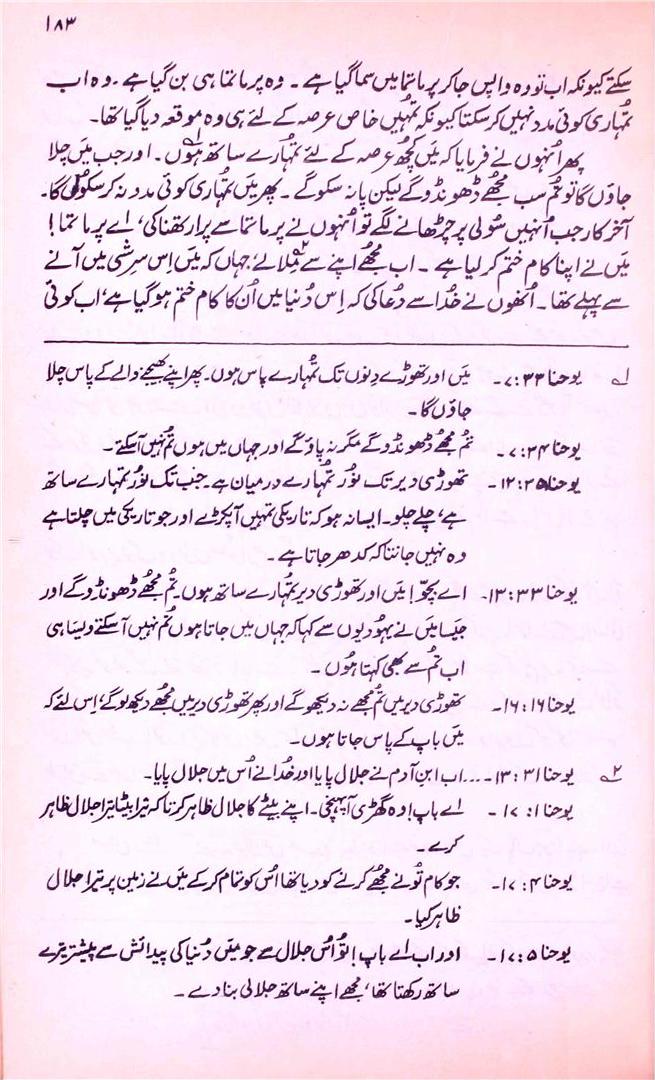 ۱۸۳
سکتے کیونکہ اب تو وہ واپس جا کر پرماتما میں سما گیا ہے ۔ وہ پرماتما ہی بن گیا ہے ۔ وہ اب
تمہاری کوئی مدد نہیں کر سکتا کیونکہ تمہیں خاص عرصہ کے لئے ہی وہ موقعہ دیا گیا تھا۔
پھر اُنہوں نے فرمایا کہ میں کچھ عرصہ کے لئے تمہارے ساتھ ہوں ۱۔ اور جب میں چلا
جاؤں گا تو تم سب مجھے ڈھونڈو گے لیکن پا نہ سکو گے ۔ پھر میں تمہاری کوئی مدد نہ کر سکوں گا۔
آخر کار جب اُنہیں سُولی پر چڑھانے لگے تو اُنہوں نے پرماتما سے پرارتھنا کی، اے پرماتما!
میں نے اپنا کام ختم کر لیا ہے ۔ اب مجھے اپنے سے ۲ مِلا لے، جہاں کہ میں اِس سرشٹی میں آنے
سے پہلے تھا ۔ اُنھوں نے خدا سے دُعا کی کہ اِس دُنیا میں اُن کا کام ختم ہو گیا ہے، اب کوئی
۱ یوحنا ۷:۳۳۔ میں اور تھوڑے دِنوں تک تمہارے پاس ہوں۔ پھر اپنے بھیجنے والے کے پاس چلا
جاؤں گا۔
یوحنا ۷:۳۴۔ تم مجھے ڈھونڈو گے مگر نہ پاؤ گے اور جہاں میں ہوں تم نہیں آ سکتے۔
یوحنا ۱۲:۳۵۔ تھوڑی دیر تک نُور تمہارے درمیان ہے۔ جب تک نُور تمہارے ساتھ
ہے، چلے چلو۔ ایسا نہ ہو کہ تاریکی تمہیں آ پکڑے اور جو تاریکی میں چلتا ہے
وہ نہیں جانتا کہ کدھر جاتا ہے ۔
یوحنا ۱۳:۳۳۔ اے بچّو! میں اور تھوڑی دیر تمہارے ساتھ ہوں۔ تُم مجھے ڈھونڈو گے اور
جیسا میں نے یہودیوں سے کہا کہ جہاں میں جاتا ہوں تُم نہیں آ سکتے ویسا ہی
اب تُم سے بھی کہتا ہُوں ۔
یوحنا ۱۶:۱۶۔ تھوڑی دیر میں تُم مجھے نہ دیکھو گے اور پھر تھوڑی دیر میں مجھے دیکھ لو گے، اِس لئے کہ
میں باپ کے پاس جاتا ہوں ۔
۲ یوحنا ۱۳:۳۱۔ ... اب ابنِ آدم نے جلال پایا اور خدا نے اُس میں جلال پایا۔
یوحنا ۱۷:۱۔ اے باپ! وہ گھڑی آ پہنچی۔ اپنے بیٹے کا جلال ظاہر کر تاکہ تیرا بیٹا تیرا جلال ظاہر
کرے۔
یوحنا ۱۷:۴۔ جو کام تُو نے مجھے کرنے کو دیا تھا اُس کو تمام کر کے میں نے زمین پر تیرا جلال
ظاہر کیا۔
یوحنا ۱۷:۵۔ اور اب اے باپ! تُو اُس جلال سے جو میں دُنیا کی پیدائش سے پیشتر تیرے
ساتھ رکھتا تھا، مجھے اپنے ساتھ جلالی بنا دے ۔